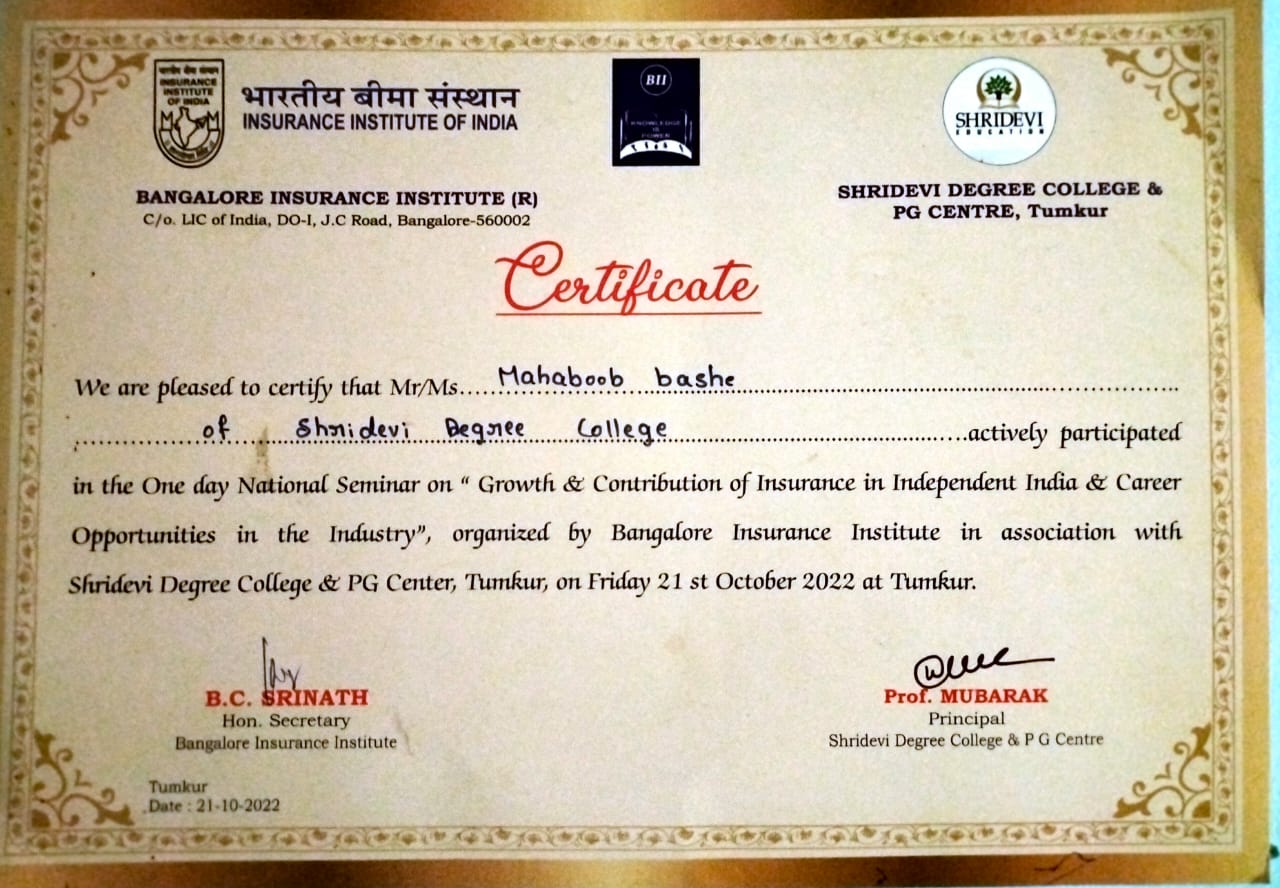 भारतीय बीमा संस्थान
INSURANCE INSTITUTE OF INDIA
भारतीय बीमा संस्थान
INSURANCE
INSTITUTE
OF INDIA
BII
KNOWLEDGE
IS
POWER
SHRIDEVI
EDUCATION
BANGALORE INSURANCE INSTITUTE (R)
C/o. LIC of India, DO-I, J.C Road, Bangalore-560002
SHRIDEVI DEGREE COLLEGE &
PG CENTRE, Tumkur
Certificate
We are pleased to certify that Mr/Ms.... Mahaboob bashe
of Shridevi Degree College actively participated
in the One day National Seminar on “ Growth & Contribution of Insurance in Independent India & Career
Opportunities in the Industry”, organized by Bangalore Insurance Institute in association with
Shridevi Degree College & PG Center, Tumkur, on Friday 21 st October 2022 at Tumkur.
B.C. SRINATH
Hon. Secretary
Bangalore Insurance Institute
Prof. MUBARAK
Principal
Shridevi Degree College & P G Centre
Tumkur
Date : 21-10-2022